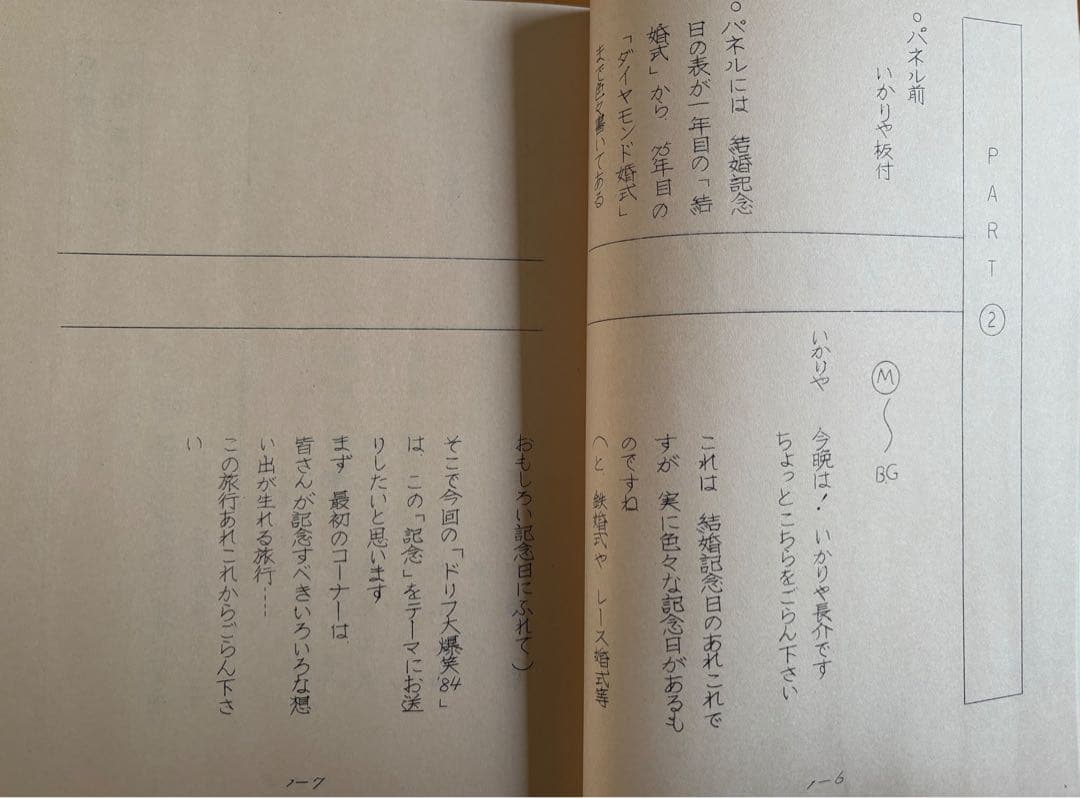 PART②
○パネル前
いかりや板付
○パネルには 結婚記念
日の表が一年目の「結
婚式」から 75年目の
「ダイヤモンド婚式」
まで色々書いてある
Ⓜ〜BG
いかりや 今晩は! いかりや長介です
ちょっとこちらをごらん下さい
これは 結婚記念日のあれこれで
すが 実に色々な記念日があるも
のですね
(と 鉄婚式や レース婚式等
1-6
おもしろい記念日にふれて)
そこで今回の「ドリフ大爆笑'84」
は、この「記念」をテーマにお送
りしたいと思います
まず 最初のコーナーは
皆さんが記念すべきいろいろな想
い出が生れる旅行----
この旅行あれこれからごらん下さ
い
1-7